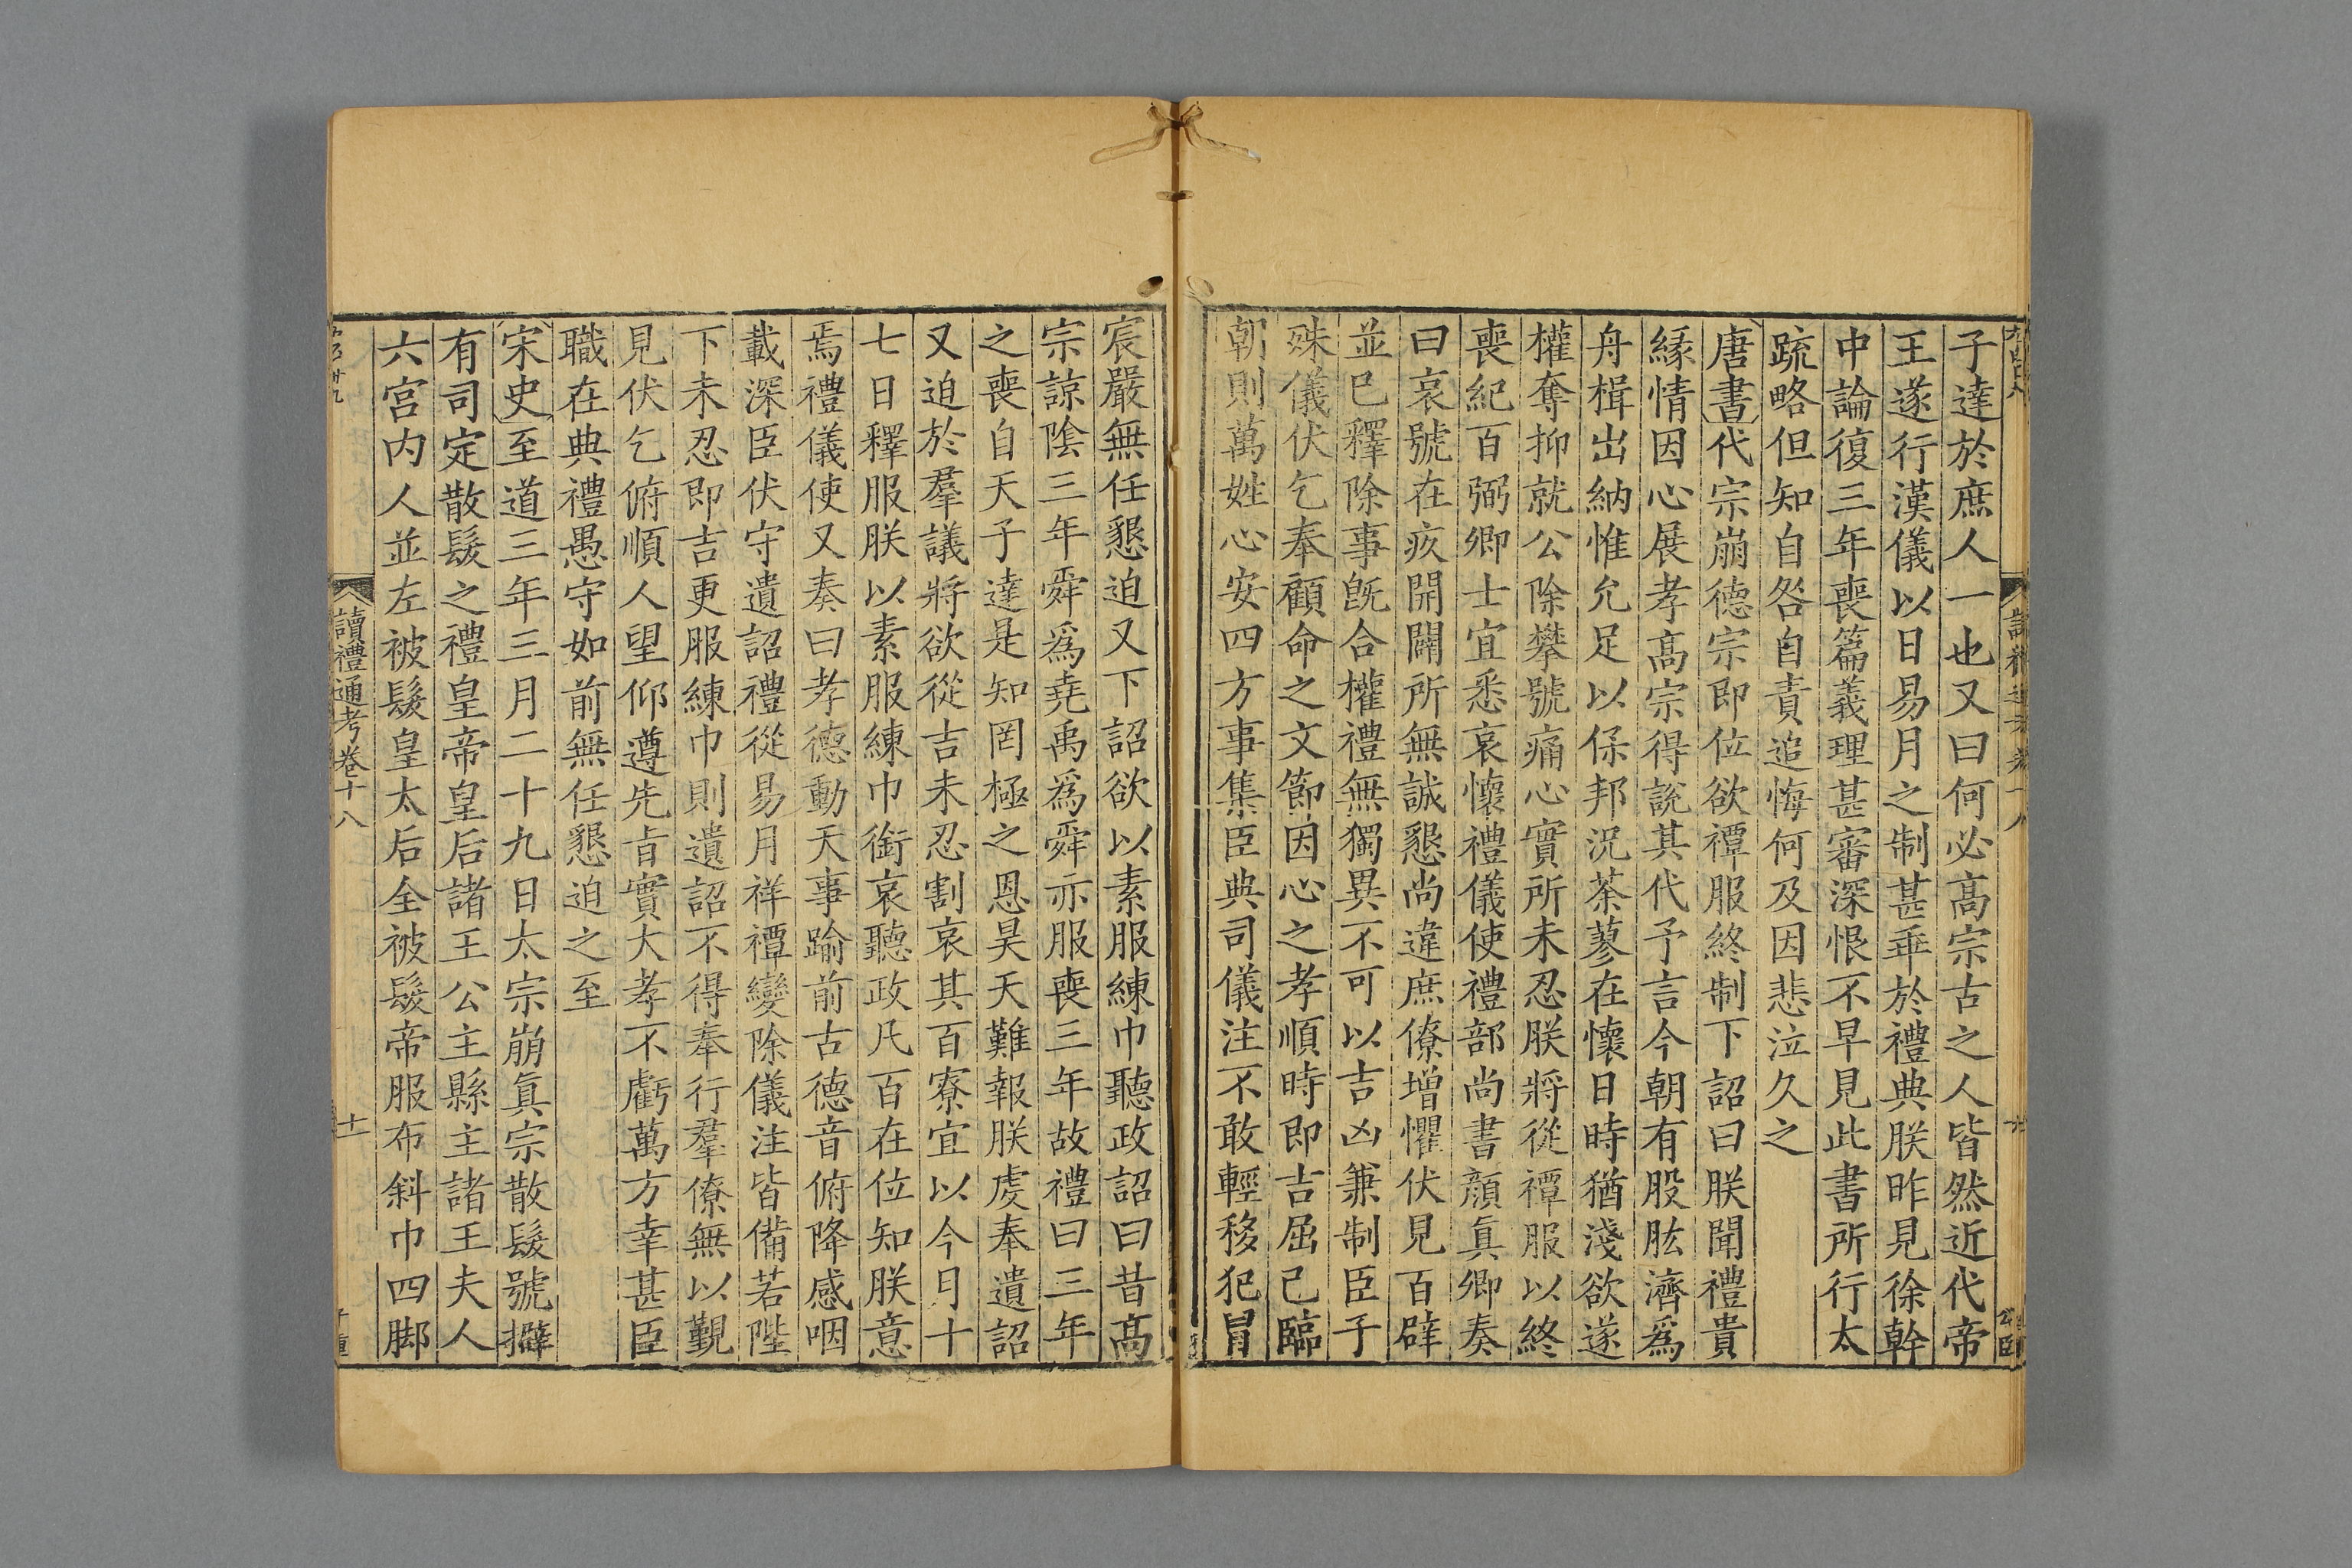 子達於庶人一也又曰何必高宗古之人皆然近代帝
王遂行漢儀以日易月之制甚乖於禮典朕昨見徐幹
中論復三年喪篇義理甚審深恨不早見此書所行太
疏略但知自咎自責追悔何及因悲泣久之
唐書代宗崩德宗即位欲禫服終制下詔曰朕聞禮貴
緣情因心展孝高宗得說其代予言今朝有股肱濟為
舟楫出納惟允足以保邦況荼蓼在懷日時猶淺欲遂
權奪抑就公除攀號痛心實所未忍朕將從禫服以終
喪紀百弼卿士宜悉哀懷禮儀使禮部尚書顔眞卿奏
曰哀號在疚開闢所無誠懇尚違庶僚增懼伏見百辟
並已釋除事旣合權禮無獨異不可以吉凶兼制臣子
殊儀伏乞奉顧命之文節因心之孝順時即吉屈己臨
朝則萬姓心安四方事集臣典司儀注不敢輕移犯冒
宸嚴無任懇迫又下詔欲以素服練巾聽政詔曰昔高
宗諒陰三年舜爲堯禹爲舜亦服喪三年故禮曰三年
之喪自天子達是知罔極之恩昊天難報朕虔奉遺詔
又迫於羣議將欲從吉未忍割哀其百寮宜以今月十
七日釋服朕以素服練巾銜哀聽政凡百在位知朕意
焉禮儀使又奏曰孝德動天事踰前古德音俯降感咽
載深臣伏守遺詔禮從易月祥禫變除儀注皆備若陛
下未忍即吉更服練巾則遺詔不得奉行羣僚無以觀
見伏乞俯順人望仰遵先旨實大孝不虧萬方幸甚臣
職在典禮愚守如前無任懇迫之至
宋史至道三年三月二十九日太宗崩眞宗散髮號擗
有司定散髮之禮皇帝皇后諸王公主縣主諸王夫人
六宫内人並左被髮皇太后全被髮帝服布斜巾四脚
讀禮通考卷十八
十一